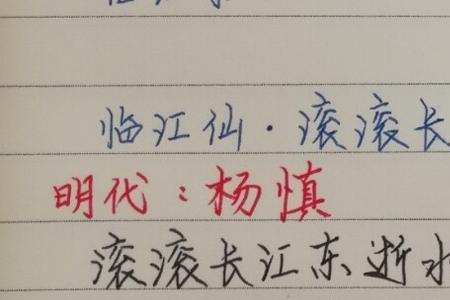 临江仙·滚滚长
明代:杨慎
滚滚长江东逝水